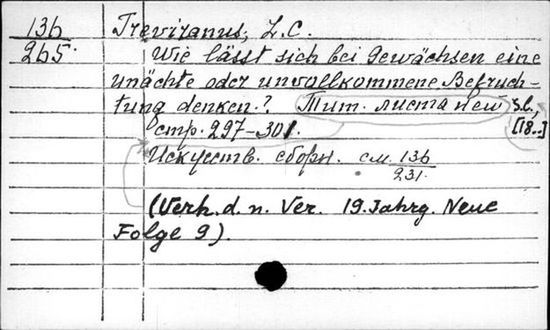 13б Treviranus, L.C.
265.
Wie lässt sich bei Gewächsen eine
unächte oder unvollkommene Befruch-
tung denken? Тит. листа нет s.l.,
стр. 297-301. [18..]
Искусств. сборн. см. 13б
231.
(Verh. d. n. Ver. 19. Jahrg. Neue
Folge 9).